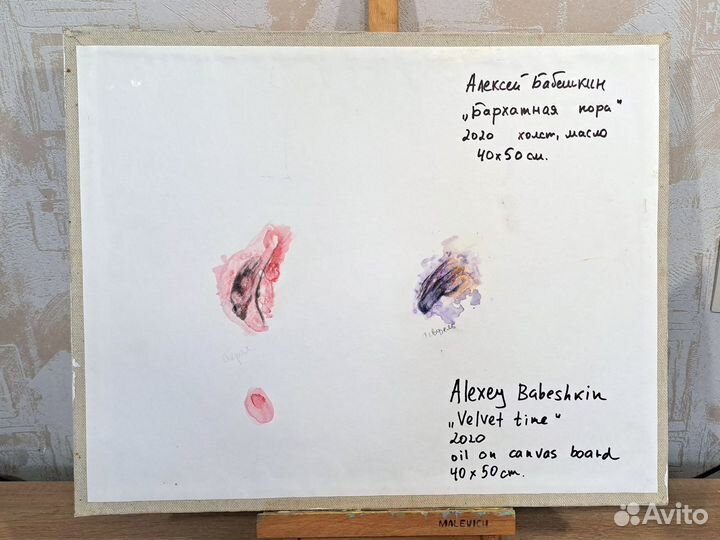 Алексей Бабешкин
„Бархатная пора"
2020 холст, масло
40х50 см.
Alexey Babeshkin
„Velvet time"
2020
oil on canvas board
40 x 50 cm.
MALEVICH
Avito